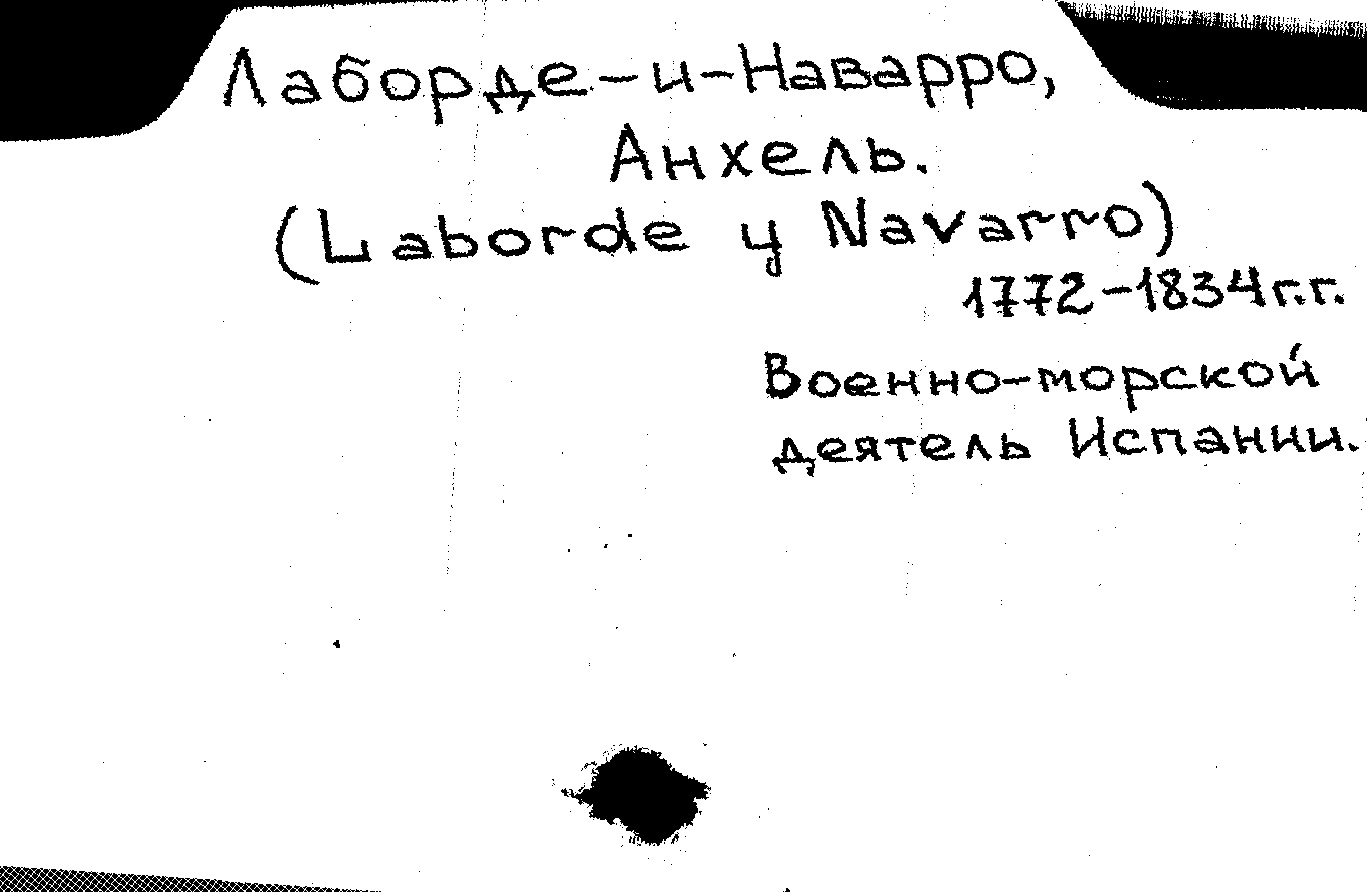 Лаборде-и-Наварро,
Анхель.
(Laborde y Navarro)
1772-1834г.г.
Военно-морской
деятель Испании.